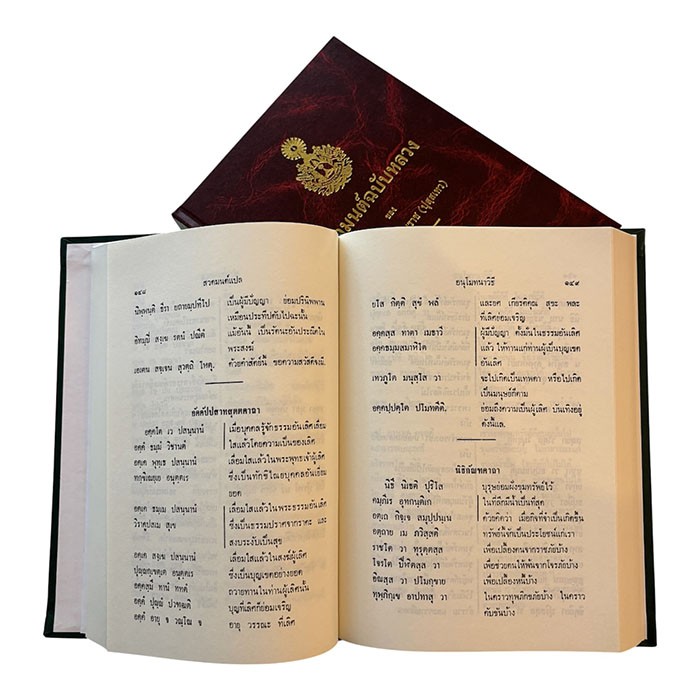 มนต์ฉบับหลวง
ของ
ราช (ปุสฺสเทว)
๑๔๘ สวดมนต์แปล
นิพฺพนฺติ ธีรา ยถายมฺปทีโป เป็นผู้มีปัญญา ย่อมปรินิพพาน
เหมือนประทีปดับไปฉะนั้น
อิทมฺปิ สงฺเฆ รตนํ ปณีตํ แม้อันนี้ เป็นรัตนะอันประณีตใน
พระสงฆ์
เอเตน สจฺเจน สุวตฺถิ โหตุ. ด้วยคำสัตย์นี้ ขอความสวัสดีจงมี.
อัคคัปปสาทสุตตคาถา
อคฺคโต เว ปสนฺนานํ เมื่อบุคคลรู้จักธรรมอันเลิศเลื่อม
อคฺคํ ธมฺมํ วิชานตํ ใสแล้วโดยความเป็นของเลิศ
อคฺเค พุทฺเธ ปสนฺนานํ เลื่อมใสแล้วในพระพุทธเจ้าผู้เลิศ
ทกฺขิเณยฺเย อนุตฺตเร ซึ่งเป็นทักขิไณยบุคคลอันเยี่ยม
ยอด
อคฺเค ธมฺเม ปสนฺนานํ เลื่อมใสแล้วในพระธรรมอันเลิศ
วิราคูปสเม สุเข ซึ่งเป็นธรรมปราศจากราคะ และ
สงบระงับเป็นสุข
อคฺเค สงฺเฆ ปสนฺนานํ เลื่อมใสแล้วในสงฆ์ผู้เลิศ
ปุญฺญกฺเขตฺเต อนุตฺตเร ซึ่งเป็นบุญเขตอย่างยอด
อคฺคสฺมึ ทานํ ททตํ ถวายทานในท่านผู้เลิศนั้น
อคฺคํ ปุญฺญํ ปวฑฺฒติ บุญที่เลิศก็ย่อมเจริญ
อคฺคํ อายุ จ วณฺโณ จ อายุ วรรณะ ที่เลิศ
อนุโมทนาวิธี ๑๔๙
ยโส กิตฺติ สุขํ พลํ และยศ เกียรติคุณ สุขะ พละ
ที่เลิศย่อมเจริญ
อคฺคสฺส ทาตา เมธาวี ผู้มีปัญญา ตั้งมั่นในธรรมอันเลิศ
อคฺคธมฺมสมาหิโต แล้ว ให้ทานแก่ท่านผู้เป็นบุญเขต
อันเลิศ
เทวภูโต มนุสฺโส วา จะไปเกิดเป็นเทพดา หรือไปเกิด
เป็นมนุษย์ก็ตาม
อคฺคปฺปตฺโต ปโมทตีติ. ย่อมถึงความเป็นผู้เลิศ บันเทิงอยู่
ดังนี้แล.
นิธิกัณฑคาถา
นิธึ นิเธติ ปุริโส บุรุษย่อมฝังขุมทรัพย์ไว้
คมฺภีเร อุทกนฺติเก ในที่ลึกมีน้ำเป็นที่สุด
อตฺเถ กิจฺเจ สมุปฺปนฺเน ด้วยคิดว่า เมื่อกิจที่จำเป็นเกิดขึ้น
อตฺถาย เม ภวิสฺสติ ทรัพย์นี้จักเป็นประโยชน์แก่เรา
ราชโต วา ทุรุตฺตสฺส เพื่อเปลื้องตนจากราชภัยบ้าง
โจรโต ปีฬิตสฺส วา เพื่อช่วยตนให้พ้นจากโจรภัยบ้าง
อิณสฺส วา ปโมกฺขาย เพื่อเปลื้องหนี้บ้าง
ทุพฺภิกฺเข อาปทาสุ วา ในคราวทุพภิกขภัยบ้าง ในคราว
คับขันบ้าง